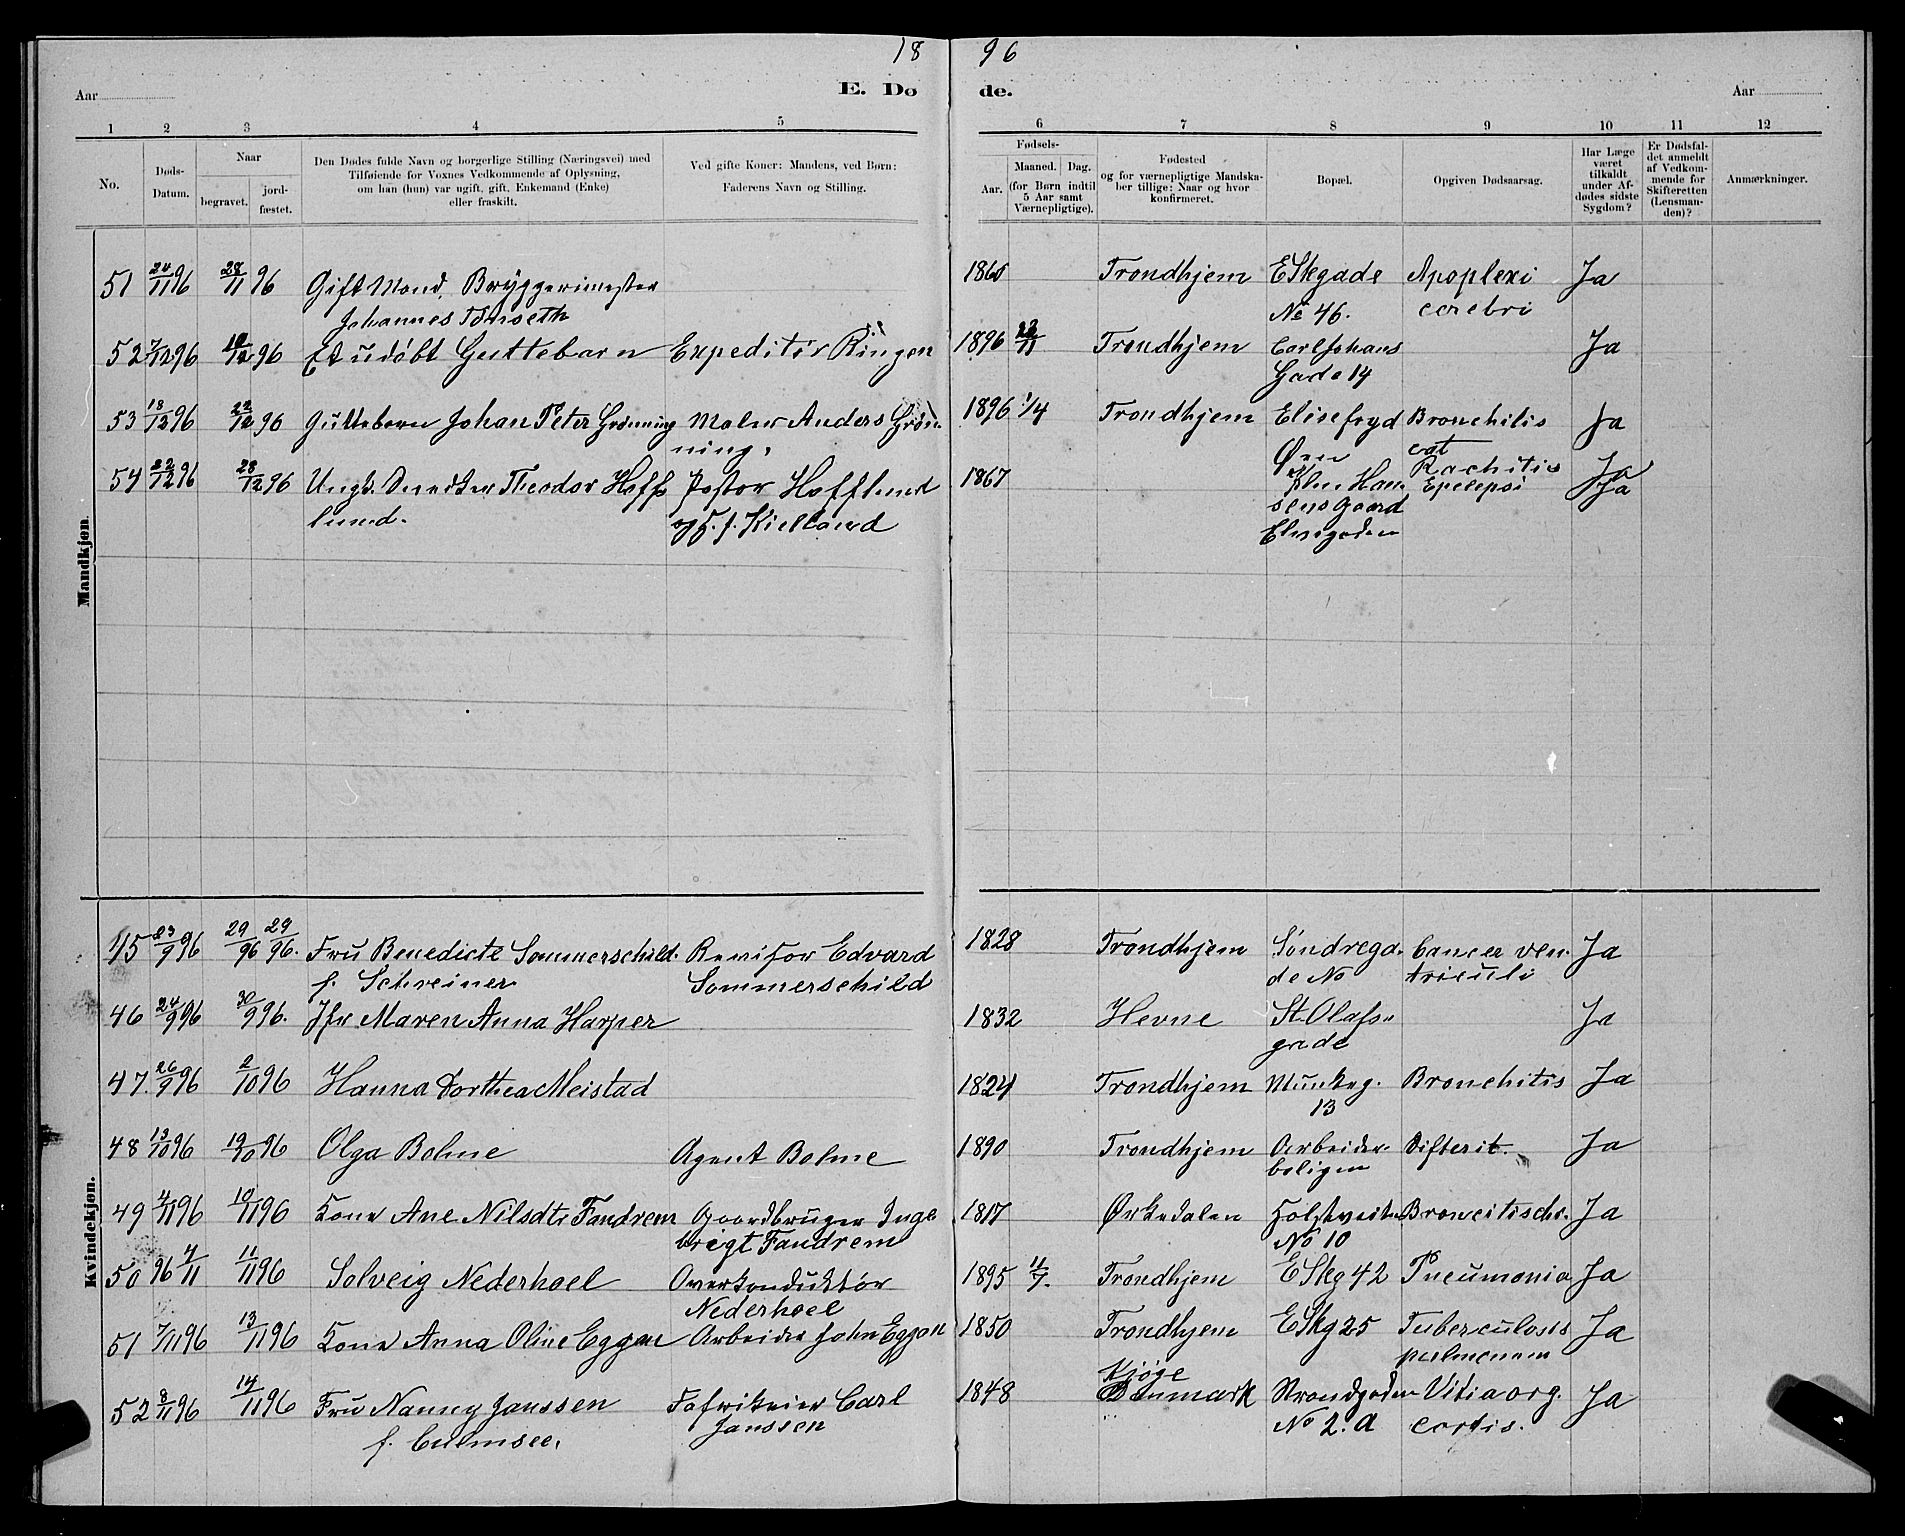 18 96
Aar E. Dø de. Aar
1 2 3 4 5 6 7 8 9 10 11 12
No.
Døds-
Datum.
Naar
begravet.
jord-
fæstet.
Den Dødes fulde Navn og borgerlige Stilling (Næringsvei) med
Tilføiende for Voxnes Vedkommende af Oplysning,
om han (hun) var ugift, gift, Enkemand (Enke)
eller fraskilt.
Ved gifte Koner: Mandens, ved Børn:
Faderens Navn og Stilling.
Fødsels-
Aar.
Maaned. Dag.
(for Børn indtil
5 Aar samt
Værnepligtige).
Fødested
og for værnepligtige Mandska-
ber tillige: Naar og hvor
konfirmeret.
Bopæl.
Opgiven Dødsaarsag.
Har Læge
været
tilkaldt
under Af-
dødes sidste
Sygdom?
Er Dødsfal-
det anmeldt
af Vedkom-
mende for
Skifteretten
(Lensman-
den)?
Anmærkninger.
Mandkjøn.
51 24/11 96 28/11 96 Gift Mand, Bryggerimester 1860 Trondhjem ESkgade Apoplexi Ja
Johannes Tønseth No 46. cerebri
52 7/12 96 12/12 96 Et udøbt Guttebarn Expeditør Ringen 1896 23/11 Trondhjem Carl Johans Ja
Gade 14
53 18/12 96 22/12 96 Guttebarn Johan Peter Grønning Maler Anders Grøn 1896 1/4 Trondhjem Elisefryd Bronchitis Ja
ning. Øen cat
Rachitis Ja
54 22/12 96 28/12 96 Ungk. Theodor Hoff Pastor Hofflund 1867 Han Epelepsi Ja
lund. og f. Kielland sens Gaard
Elvegaden
Kvindekjøn.
45 23/9 96 29/96 29/96. Fru Benedicte Sommerschild. Revisor Edvard 1828 Trondhjem Søndrega Cancer ven Ja
f. Schreiner Sommerschild de No triculi
46 24/9 96 30/9 96. Jfr Maren Anna Harper 1832 Hevne St. Olafs Ja
gade
47. 26/9 96 2/10 96 Hanna Dorthea Meistad 1824 Trondhjem Munkeg. Bronchitis Ja
13
48 13/10 96 19/10 96 Olga Bohne Agent Bohne 1890 Trondhjem Arbeider Difterit. Ja
boligen
49 4/11 96 10/11 96 Kone Ane Nilsdtr Fandrem Gaardbruger Inge 1817 Ørkedalen Holstveiten Broncitisch. Ja
bregt Fandrem No 10
50 96 4/11 11/11 96 Solveig Nederhoel Overkonduktør 1895 11/7. Trondhjem ESkg 42 Pneumonia Ja
Nederhoel
51 7/11 96 13/11 96 Kone Anna Oline Eggen Arbeider John Eggen 1850 Trondhjem ESkg 25 Tuberculosis Ja
pulmonum
Kjøge
52 8/11 96 14/11 96 Fru Nanny Janssen Fabrikeier Carl 1848 Danmark Strandgaden Vitia org. Ja
f. Culmsee. Janssen No 2. a cortis.